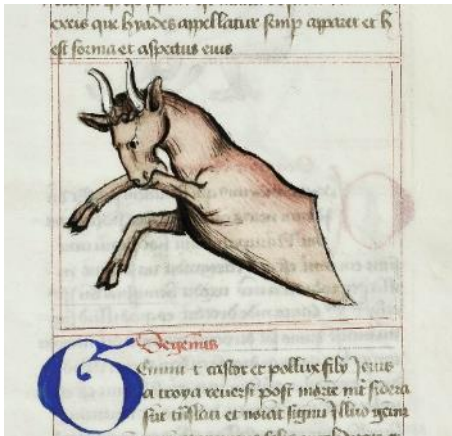 exeis que hyades appellatur semp apparet et h
est forma et aspectus eius
De geminis
Gemini .i. castor et pollux filij Jouis
a troya reuersi post morte int sidera
sut tislati et uocat signu illud gemi